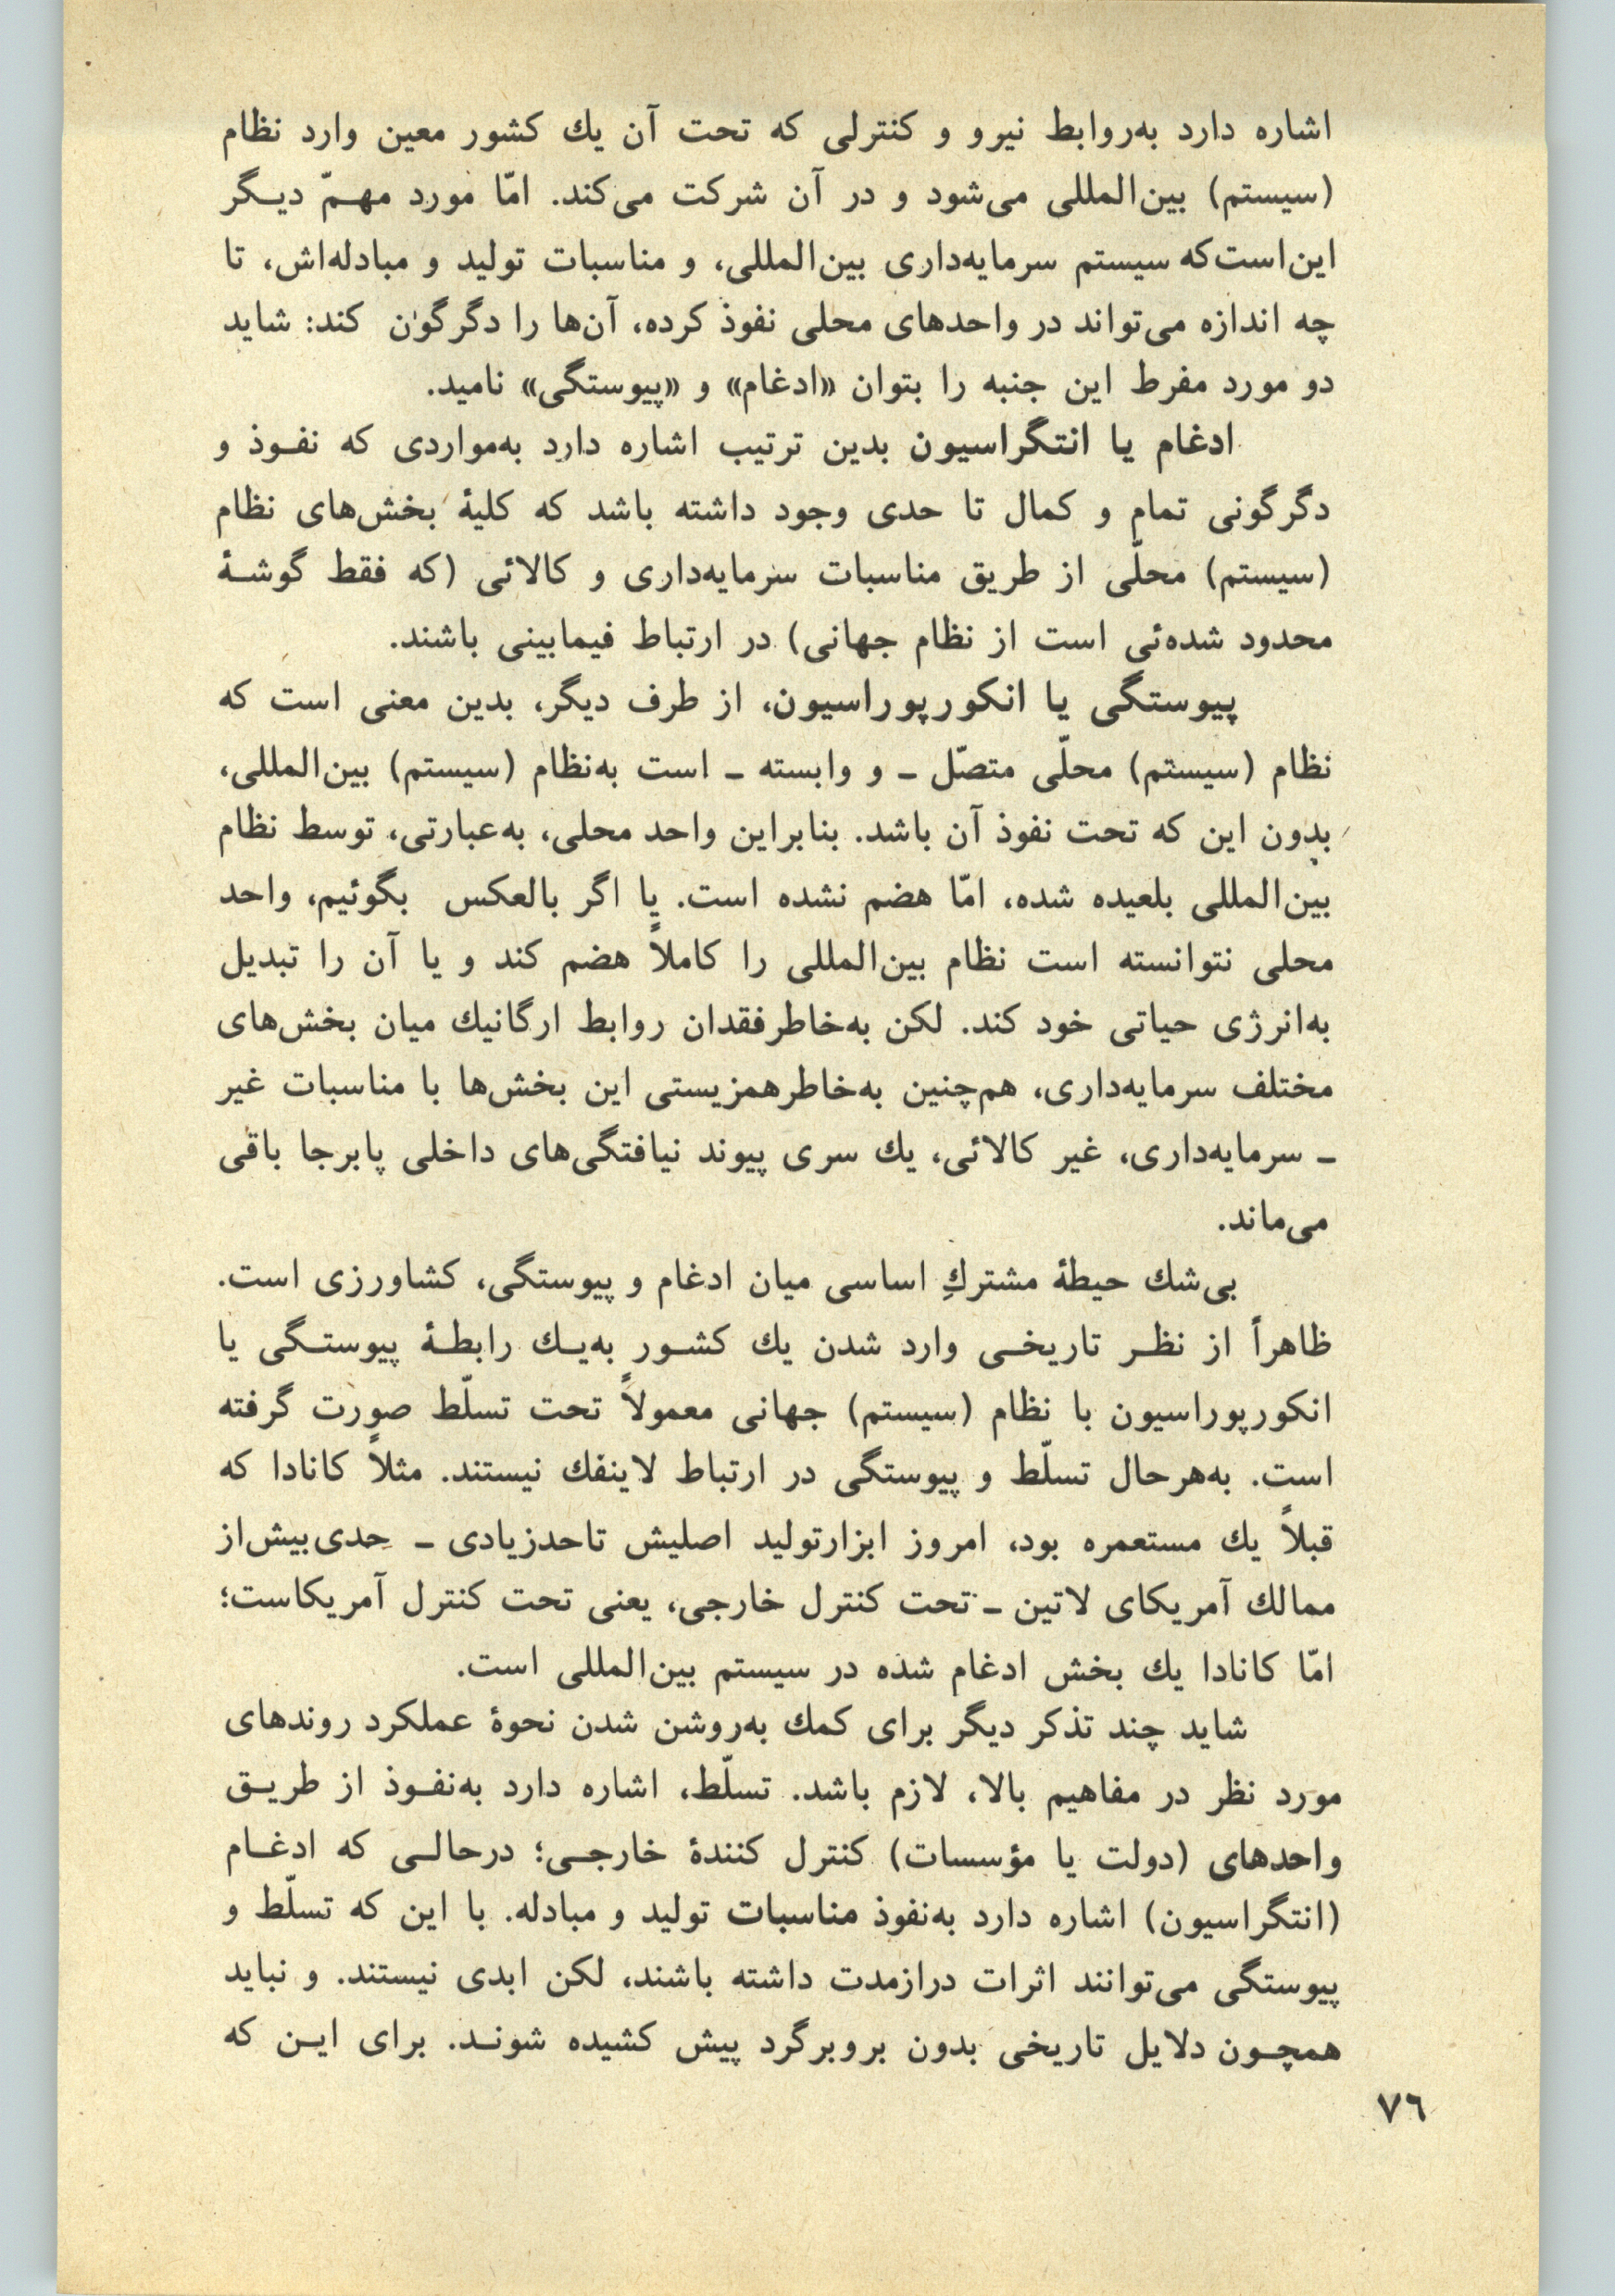 اشاره دارد به‌روابط نیرو و کنترلی که تحت آن یك کشور معین وارد نظام
(سیستم) بین‌المللی می‌شود و در آن شرکت می‌کند. امّا مورد مهـمّ دیـگر
این‌است‌که سیستم سرمایه‌داری بین‌المللی، و مناسبات تولید و مبادله‌اش، تا
چه اندازه می‌تواند در واحدهای محلی نفوذ کرده، آن‌ها را دگرگون کند: شاید
دو مورد مفرط این جنبه را بتوان «ادغام» و «پیوستگی» نامید.
ادغام یا انتگراسیون بدین ترتیب اشاره دارد به‌مواردی که نفـوذ و
دگرگونی تمام و کمال تا حدی وجود داشته باشد که کلیهٔ بخش‌های نظام
(سیستم) محلّی از طریق مناسبات سرمایه‌داری و کالائی (که فقط گوشـهٔ
محدود شده‌ئی است از نظام جهانی) در ارتباط فیمابینی باشند.
پیوستگی یا انکورپوراسیون، از طرف دیگر، بدین معنی است که
نظام (سیستم) محلّی متصّل ـ و وابسته ـ است به‌نظام (سیستم) بین‌المللی،
بدون این که تحت نفوذ آن باشد. بنابراین واحد محلی، به‌عبارتی، توسط نظام
بین‌المللی بلعیده شده، امّا هضم نشده است. یا اگر بالعکس بگوئیم، واحد
محلی نتوانسته است نظام بین‌المللی را کاملاً هضم کند و یا آن را تبدیل
به‌انرژی حیاتی خود کند. لکن به‌خاطرفقدان روابط ارگانیك میان بخش‌های
مختلف سرمایه‌داری، هم‌چنین به‌خاطرهمزیستی این بخش‌ها با مناسبات غیر
ـ سرمایه‌داری، غیر کالائی، یك سری پیوند نیافتگی‌های داخلی پابرجا باقی
می‌ماند.
بی‌شك حیطهٔ مشتركِ اساسی میان ادغام و پیوستگی، کشاورزی است.
ظاهراً از نظـر تاریخـی وارد شدن یك کشـور به‌یـك رابطـهٔ پیوستـگی یا
انکورپوراسیون با نظام (سیستم) جهانی معمولاً تحت تسلّط صورت گرفته
است. به‌هرحال تسلّط و پیوستگی در ارتباط لاینفك نیستند. مثلاً کانادا که
قبلاً یك مستعمره بود، امروز ابزارتولید اصلیش تاحدزیادی ـ حدی‌بیش‌از
ممالك آمریکای لاتین ـ تحت کنترل خارجی، یعنی تحت کنترل آمریکاست؛
امّا کانادا یك بخش ادغام شده در سیستم بین‌المللی است.
شاید چند تذکر دیگر برای کمك به‌روشن شدن نحوهٔ عملکرد روندهای
مورد نظر در مفاهیم بالا، لازم باشد. تسلّط، اشاره دارد به‌نفـوذ از طریـق
واحدهای (دولت یا مؤسسات) کنترل کنندهٔ خارجـی؛ درحالـی که ادغـام
(انتگراسیون) اشاره دارد به‌نفوذ مناسبات تولید و مبادله. با این که تسلّط و
پیوستگی می‌توانند اثرات درازمدت داشته باشند، لکن ابدی نیستند. و نباید
همچـون دلایل تاریخی بدون بروبرگرد پیش کشیده شونـد. برای ایـن که
۷٦